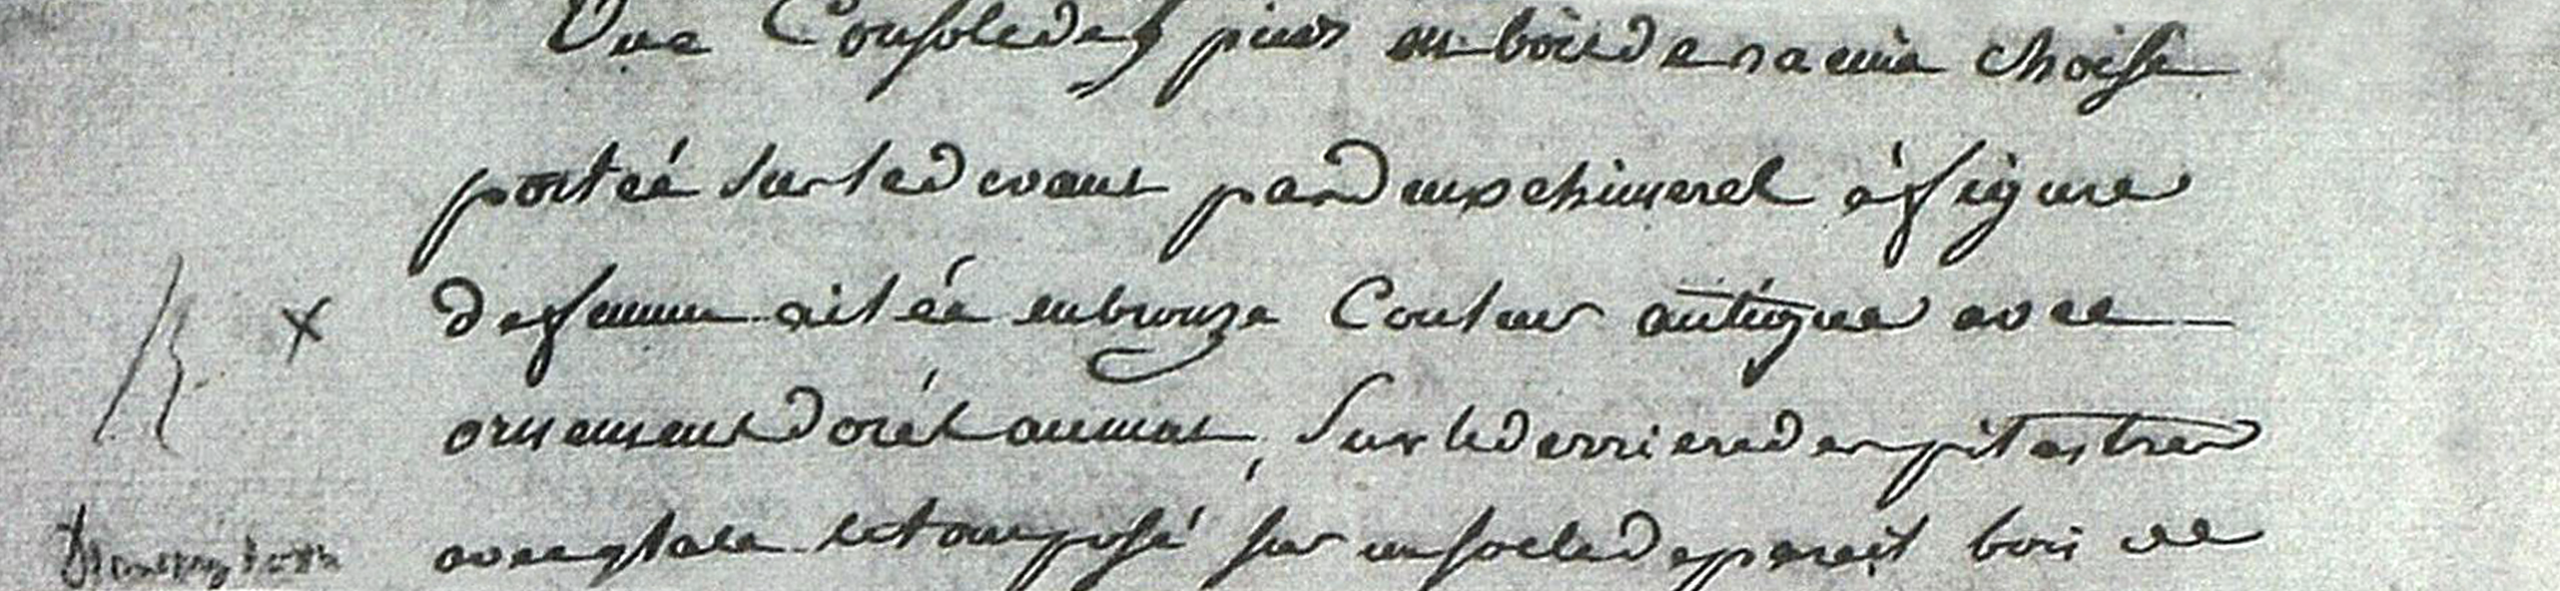 Une Console de 5 pieds en bois de racine choisie
portéé sur le devant par deux chimeres à figure
de femme ailéé en bronze Couleur antique avec
ornements dorés au mat, Sur le derriere des pilastres
avec glace le tout posé sur un socle de pareil bois